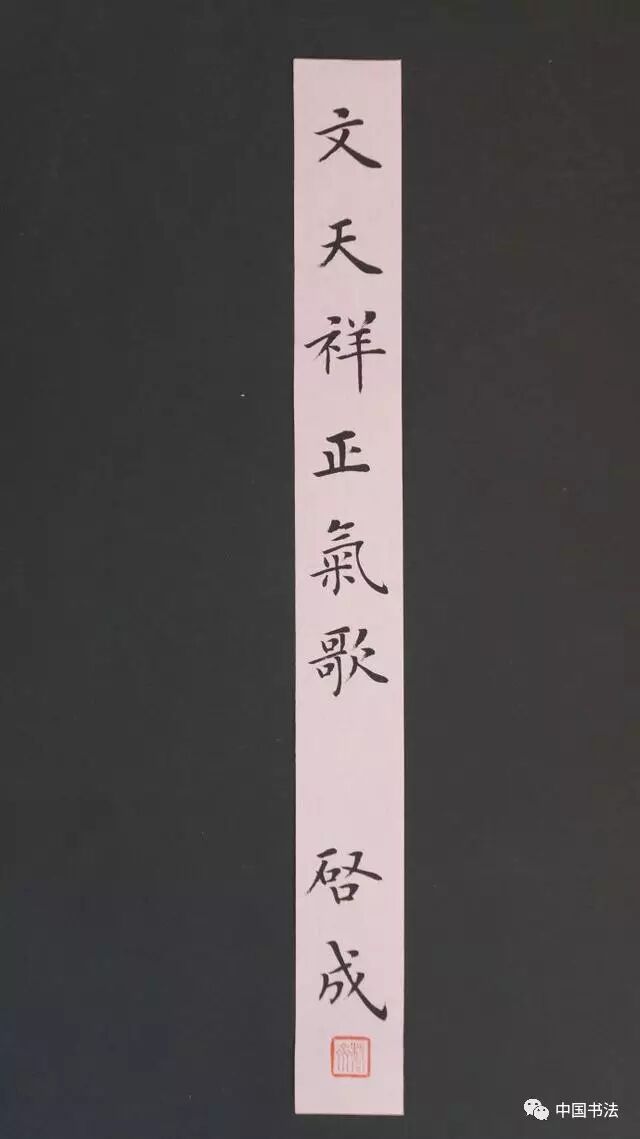 文天祥正氣歌 啓成
中国书法